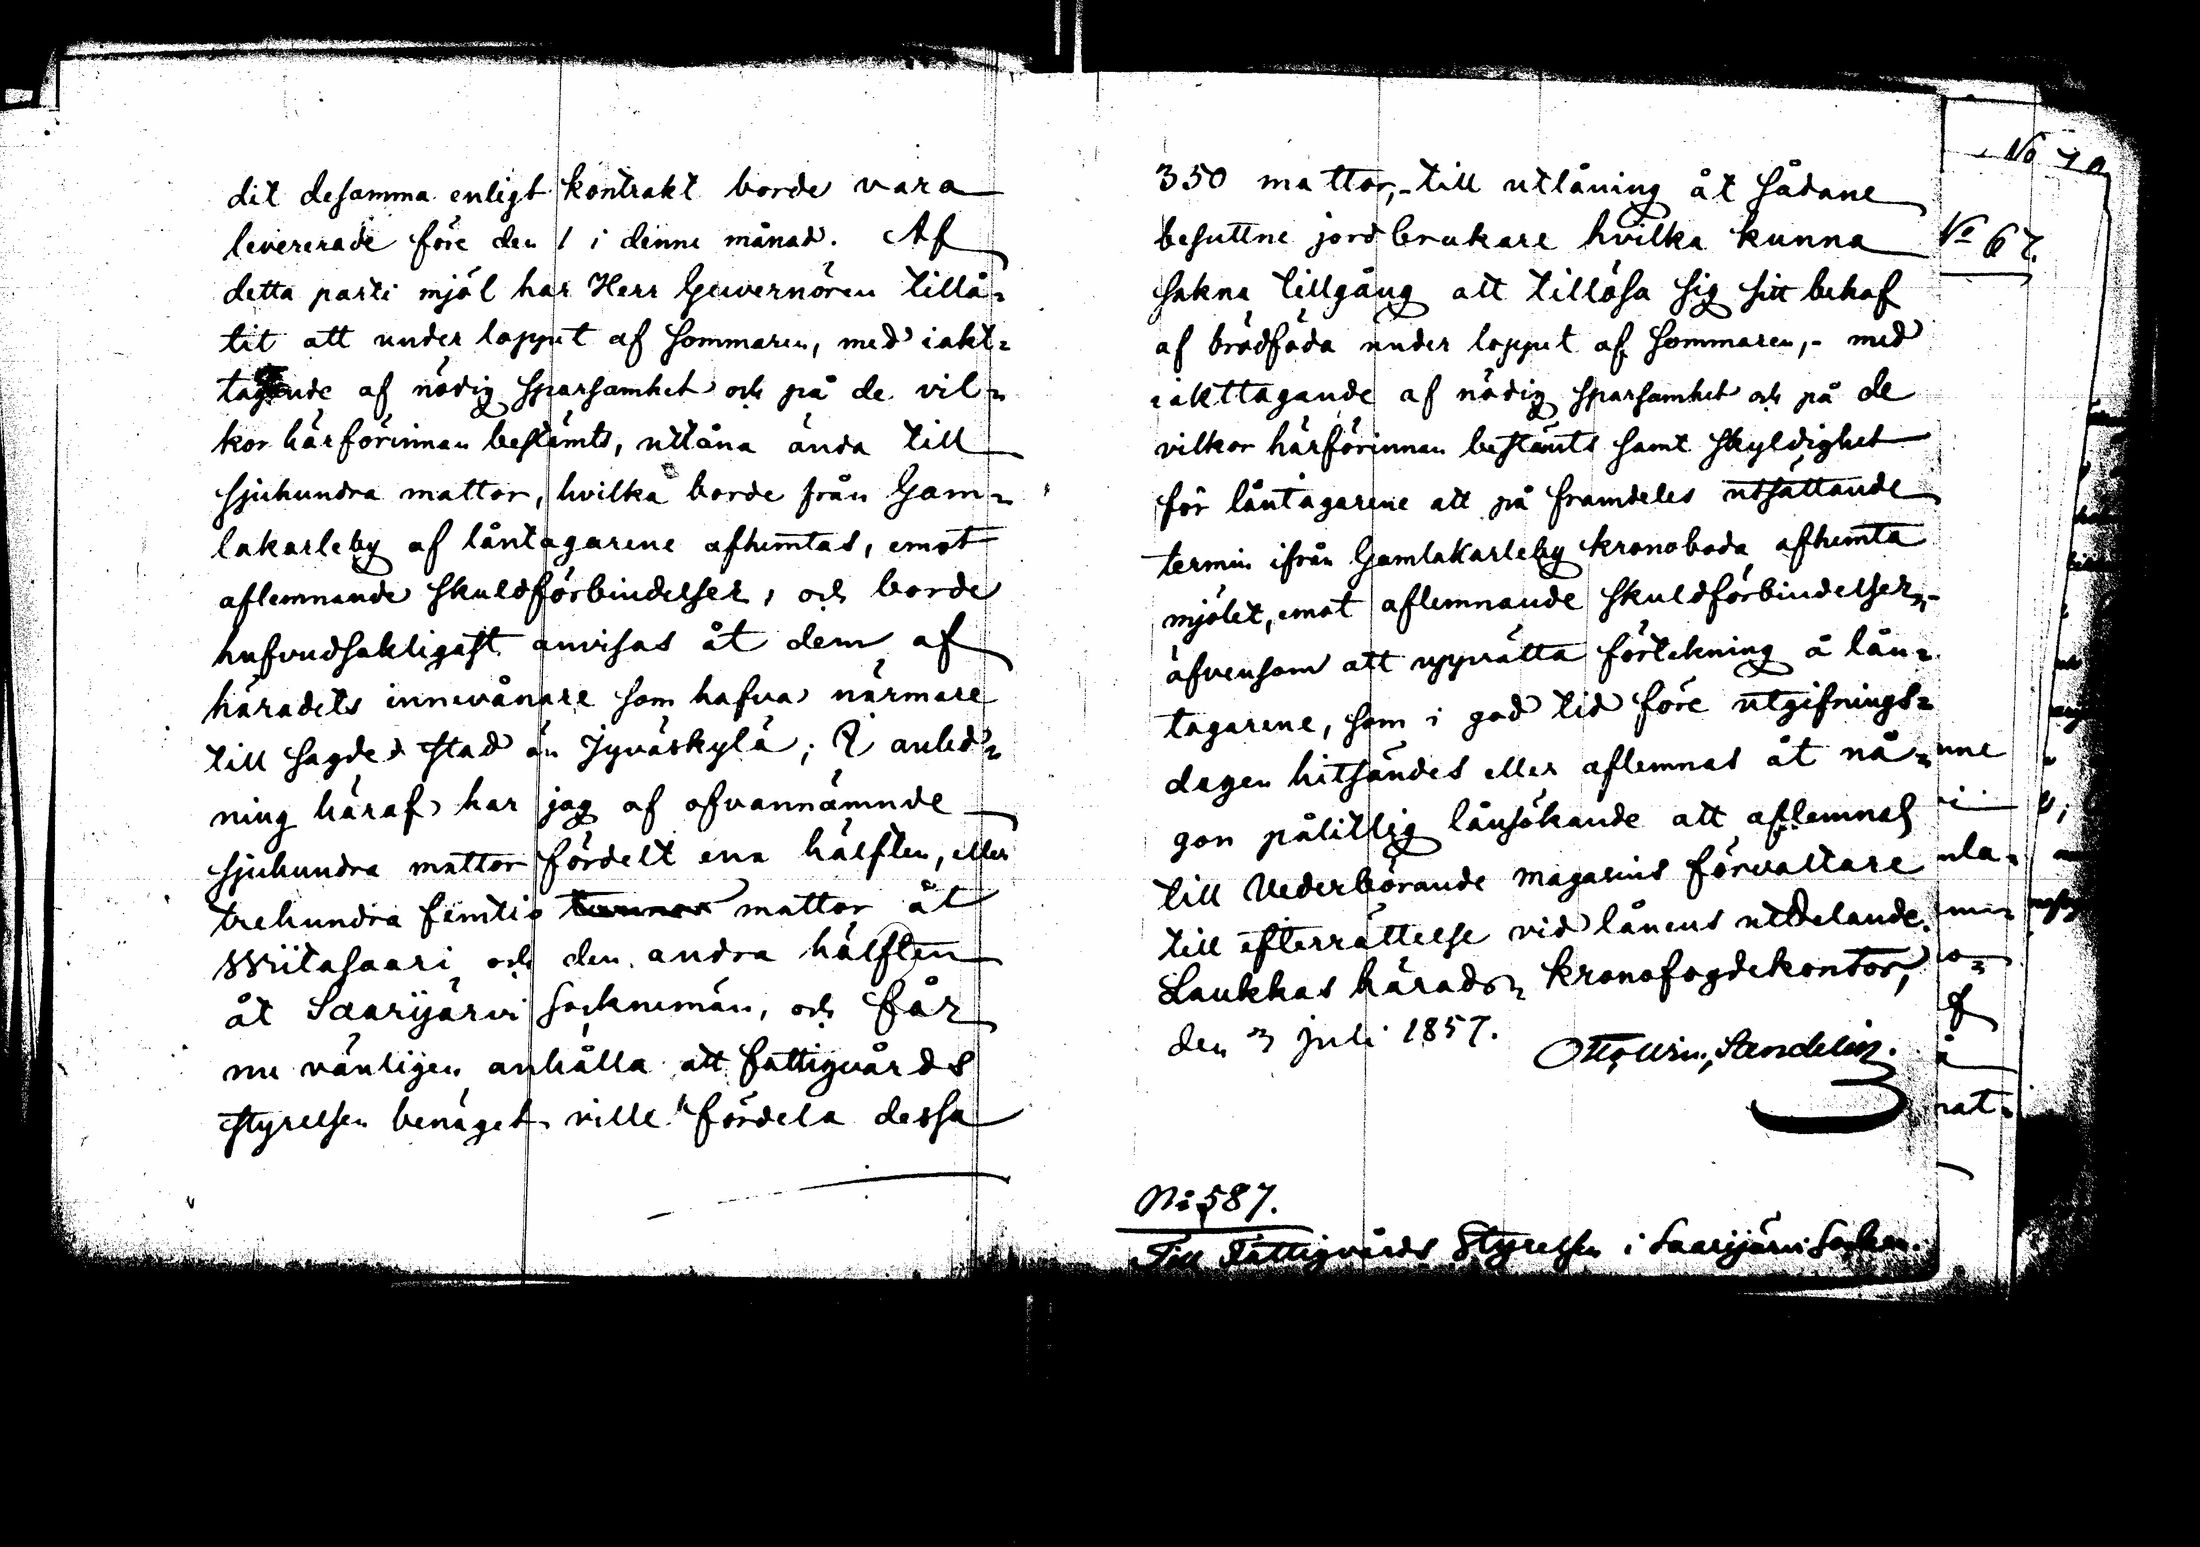 dit desamma enligt kontrakt borde vara
levererade före den 1 i denne månad. Af
detta parti mjöl har Herr Guvernören tillå-
tit att under loppet af sommaren, med iakt-
tagande af nödig sparsamhet och på de vil-
kor härförinnan bestämts, utlåna ända till
sjuhundra mattor, hvilka borde från Gam-
lakarleby af låntagarene afhemtas, emot
aflemnande skuldförbindelser, och borde
hufvudsakligast anvisas åt dem af
häradets innevånare som hafva närmare
till sagde stad än Jyväskylä; I anled-
ning häraf har jag af ofvannämnde
sjuhundra mattor fördelt ena hälften, eller
trehundra femtio tunnor mattor åt
Wiitasaari och den andra hälften
åt Saarijärvi socknemän, och får
nu vänligen anhålla att fattigvårds
styrelsen benäget ville fördela dessa
350 mattor,- till utlåning åt sådane
besuttne jordbrukare hvilka kunna
sakna tillgång att tillösa sig sitt behof
af brödföda under loppet af sommaren,- med
iakttagande af nödig sparsamhet och på de
vilkor härförinnan bestämts samt skyldighet
för låntagarene att på framdeles utsättande
termin ifrån Gamlakarleby kronoboda afhemta
mjölet, emot aflemnande skuldförbindelser,-
äfvensom att upprätta förtekning å lån-
tagarene, som i god tid före utgifnings-
dagen hitsändes eller aflemnas åt nå-
gon pålitlig lånsökande att aflemnas
till Vederbörande magasins förvaltare
till efterrättelse vid lånens utdelande.
Laukkas härads- kronofogdekontor,
den 3 juli 1857. Otto Wilh. Sandelin.
No 587.
Till Fattigvårds Styrelsen i Saarijärvi Socken.
No 67.
nne
i
nla-
o-
f
å
rat-